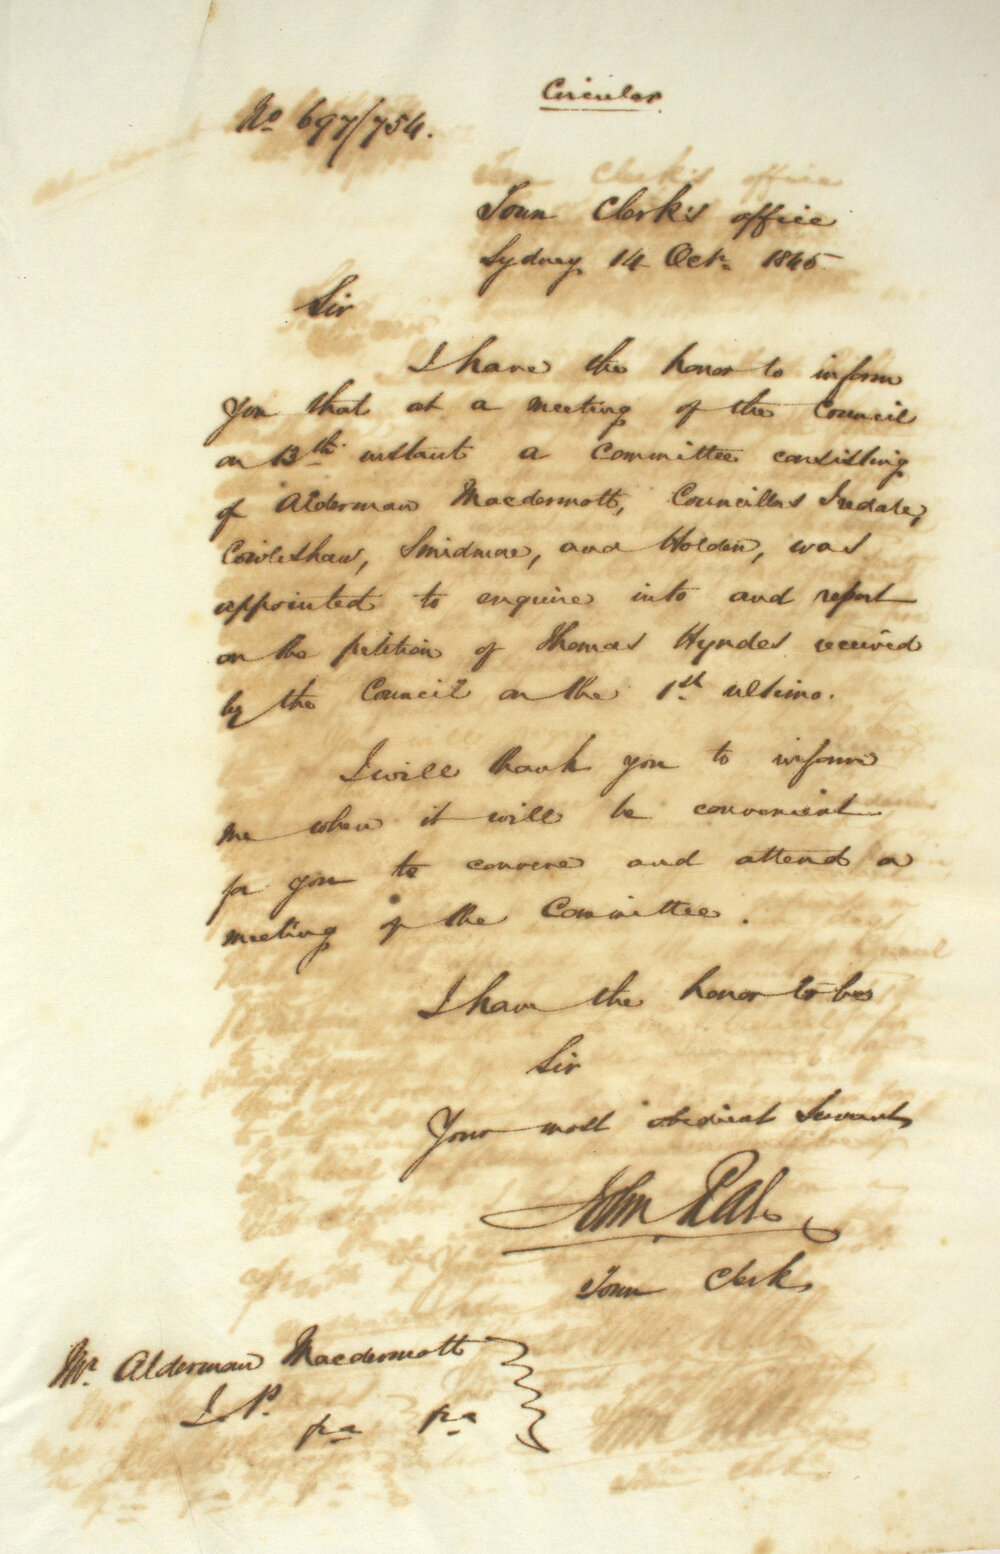 Circular
No 697/754.
Town Clerk's office
Sydney 14 Octr 1845
Sir
I have the honor to inform
you that at a meeting of the Council
on 13th instant a Committee consisting
of Alderman Macdermott, Councillors Iredale,
Cowleshaw, Smidmore, and Holden, was
appointed to enquire into and report
on the petition of Thomas Hyndes received
by the Council on the 1st ultimo.
I will thank you to inform
me when it will be convenient
for you to convene and attend a
meeting of the Committee.
I have the honor to be
Sir
Your most obedient Servant
John Rae
Town Clerk
Mr. Alderman Macdermott
J. P.